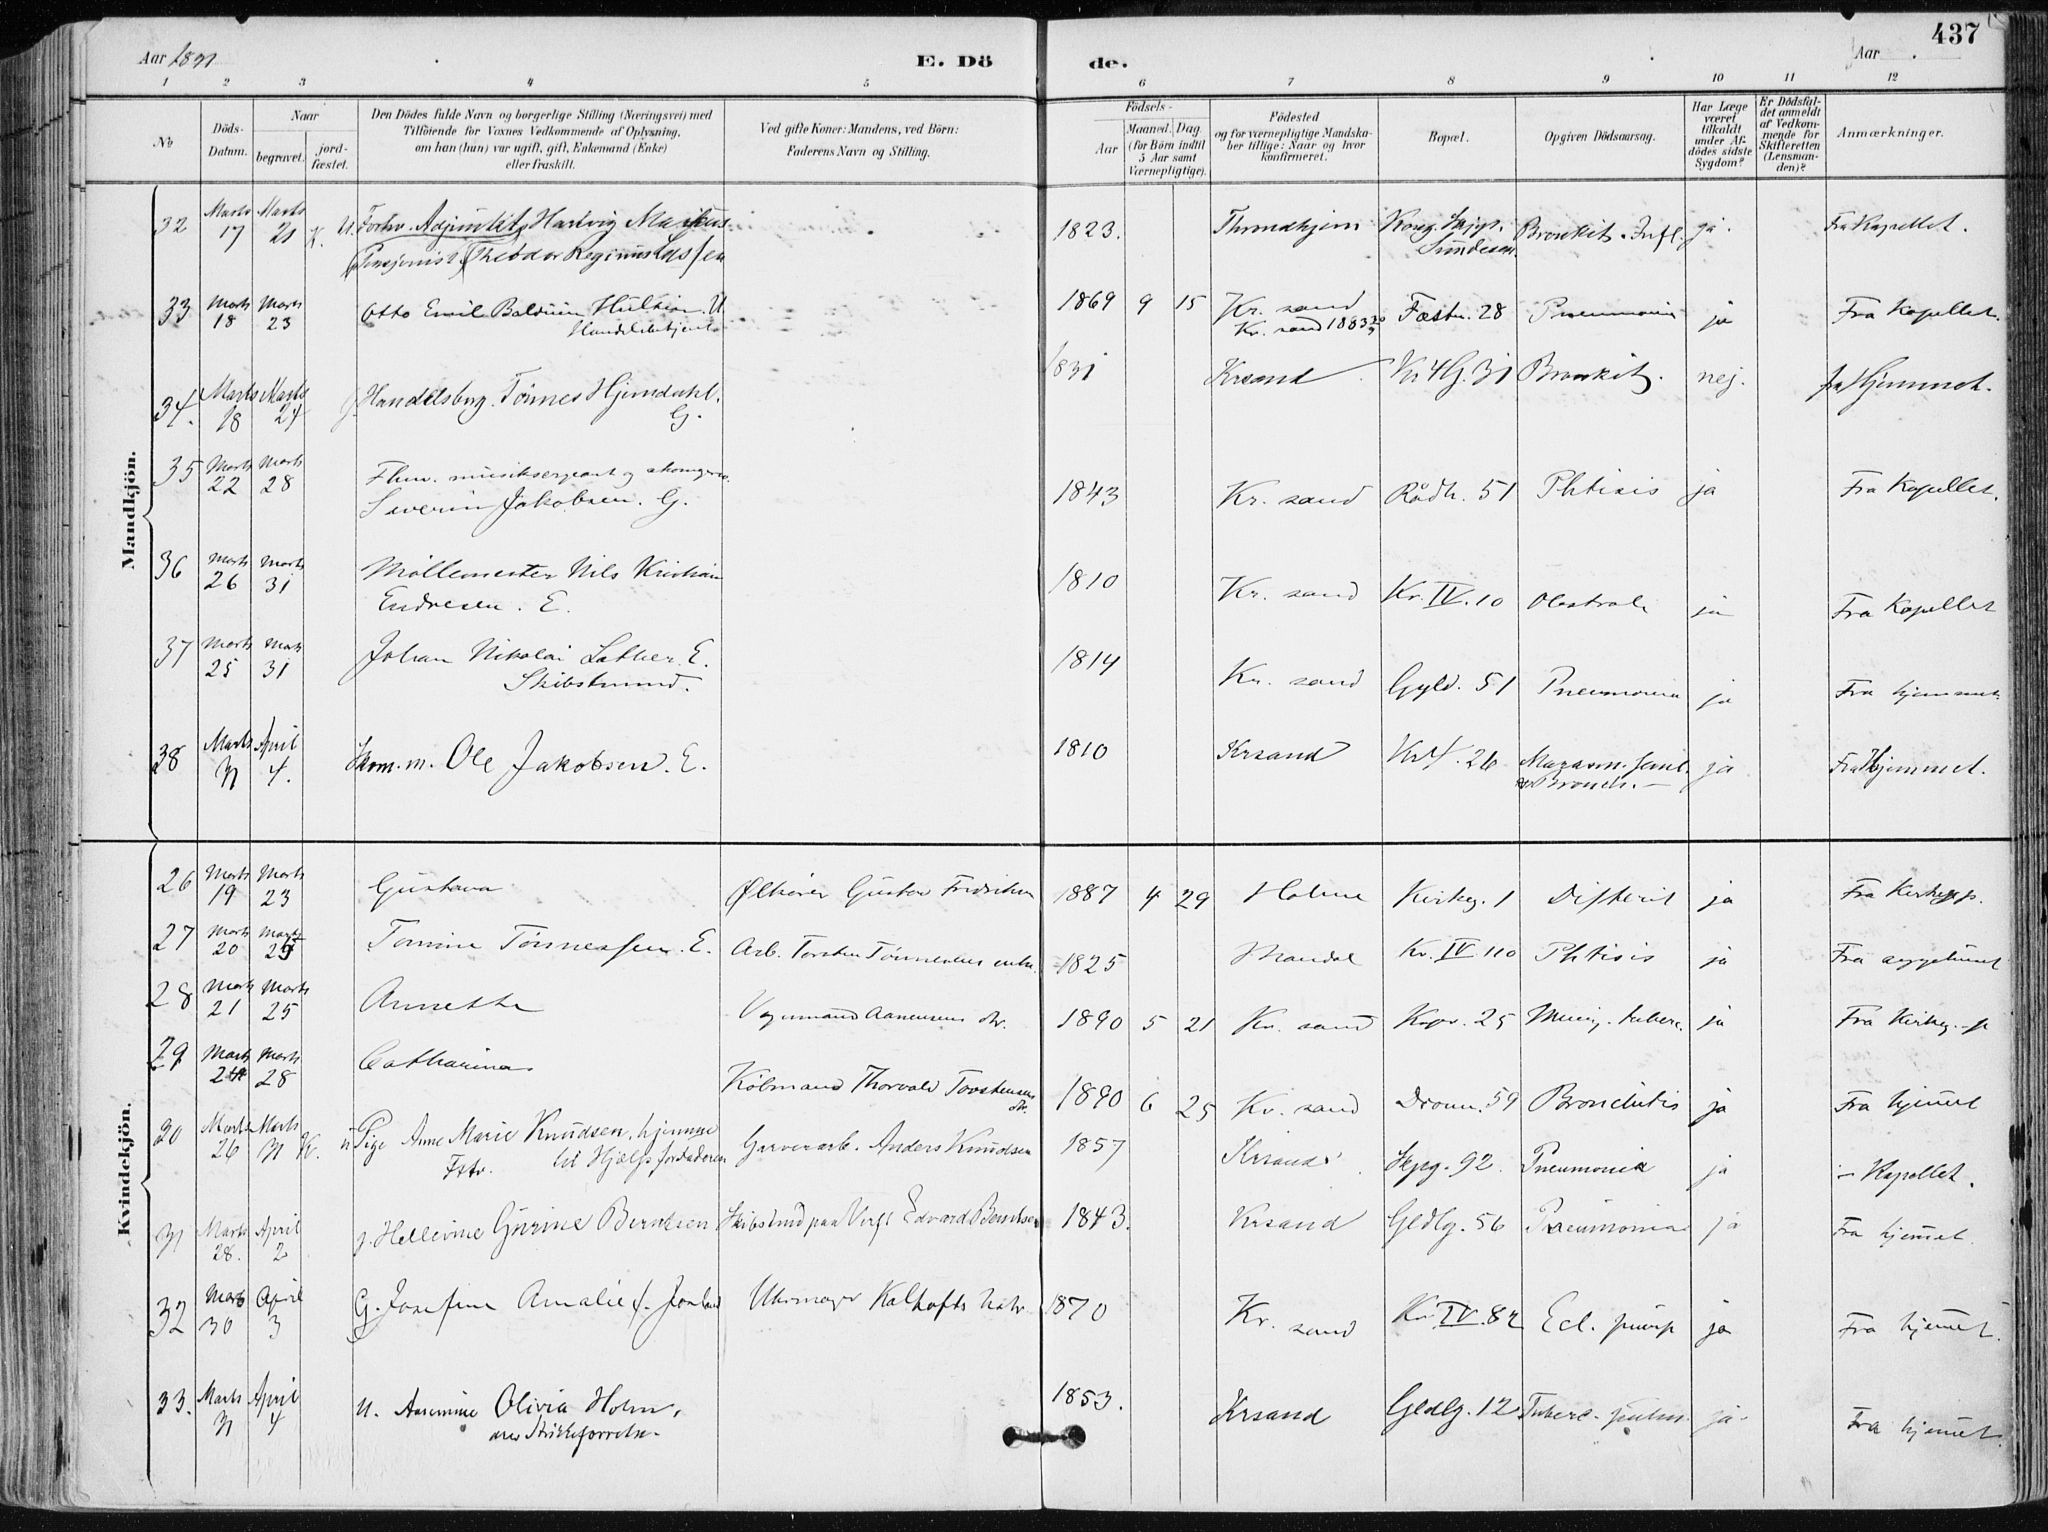 437
Aar 1891
E. Dö de.
Aar
1 2 3 4 5 6 7 8 9 10 11 12
No
Döds-Datum.
Naar
begravet.
jord-fæstet.
Den Dödes fulde Navn og borgerlige Stilling (Næringsvei) med
Tilföiende för Voxnes Vedkommende af Oplysning,
om han (hun) var ugift, gift, Enkemand (Enke)
eller fraskilt.
Ved gifte Koner: Mandens, ved Börn:
Faderens Navn og Stilling.
Födsels-
Aar
Maaned. Dag.
(for Börn indtil
5 Aar samt
Værnepligtige).
Födested
og for værnepligtige Mandska-
ber tillige: Naar og hvor
konfirmeret.
Bopæl.
Opgiven Dödsaarsag.
Har Læge
været
tilkaldt
under Af-
dödes sidste
Sygdom?
Er Dödsfal-
det anmeldt
af Vedkom-
mende for
Skifteretten
(Lensman-
den)?
Anmærkninger.
Mandkjön.
32 Marts 17 Marts 21 K. U. Forhv. Adjunkt Hartvig Markus 1823. Throndhjem Bronkit. Infl. ja. Fra Kapellet.
Pensjonist Theodor Lassen
33 Marts 18 Marts 23 Otto Emil Balduin Hultin U. 1869 9 15 Kr. sand Festn. 28 Pneumonia ja Fra Kapellet.
Handelsbetjent Kr. sand 1883
34. Marts 18 Marts 24 Handelsbrg. Tönnes Hjemdahl. G. 1831 Krsand Kv 4 G. 31 Bronkit. nej. fra Hjemmet.
35 Marts 22 Marts 28 Fhv. musiksergeant og
Severin Jakobsen. G. 1843 Kr. sand Rådh. 51 Phtisis ja Fra Kapellet.
36 Marts 26 Marts 31 Möllemester Nils Kristian
Endresen. E. 1810 Kr. sand Kv. IV. 10 ja Fra Kapellet
37 Marts 25 Marts 31 Johan Nikolai E. 1814 Kr. sand Gyld. 51 Pneumonia ja Fra hjemmet
Skibstmmd.
38 Marts 31 April 4. Skom. m. Ole Jakobsen. E. 1810 Krsand Kv 4. 26 Marasm. senil. ja Fra Hjemmet.
Bronch.
Kvindekjön.
26 Marts 19 Marts 23 Gustava Ølkörer Gustav Fredriksen 1887 4 29 Holme Kirkeg. 1 Difterit ja Fra Kirkeg.
27 Marts 20 Marts 25 Tomine Tönnessen. E. Arb. Torsten Tönnesens enke 1825 Mandal Kv. IV 110 Phtisis ja Fra sygehuset
28 Marts 21 Marts 25 Annette Vognmand Aanensens dtr. 1890 5 21 Kr. sand Kopr. 25 Mening. tuberc. ja Fra Kirkeg.
29 Marts 24 Marts 28 Catharina Köbmand Thorvald Torstensens dtr. 1890 6 25 Kr. sand Dronn. 59 Bronchitis ja Fra hjemet
30 Marts 26 Marts 31 K. u Pige Anne Marie Knudsen, hjemme Garverarb. Anders Knudsen 1857 Krsand Skpg. 92. Pneumonia ja – Kapellet.
til Hjælp for
31 Marts 28. April 2 g. Hellevine Gurine Berntsen Skibstmd paa Verft Edvard Berntsen 1843. Krsand Gldlg. 56 Pneumonia ja Fra hjemet
32 Marts 30 April 3 G. Josefine Amalie f. Uhrmager Kalhofts hstr. 1870 Kr. sand Kv IV. 82 Ecl. puerp ja Fra hjemet.
33. Marts 31 April 4 U. Olivia Holm, 1853. Krsand Gldlg. 12 Tuberc. pulm. ja. Fra hjemet.